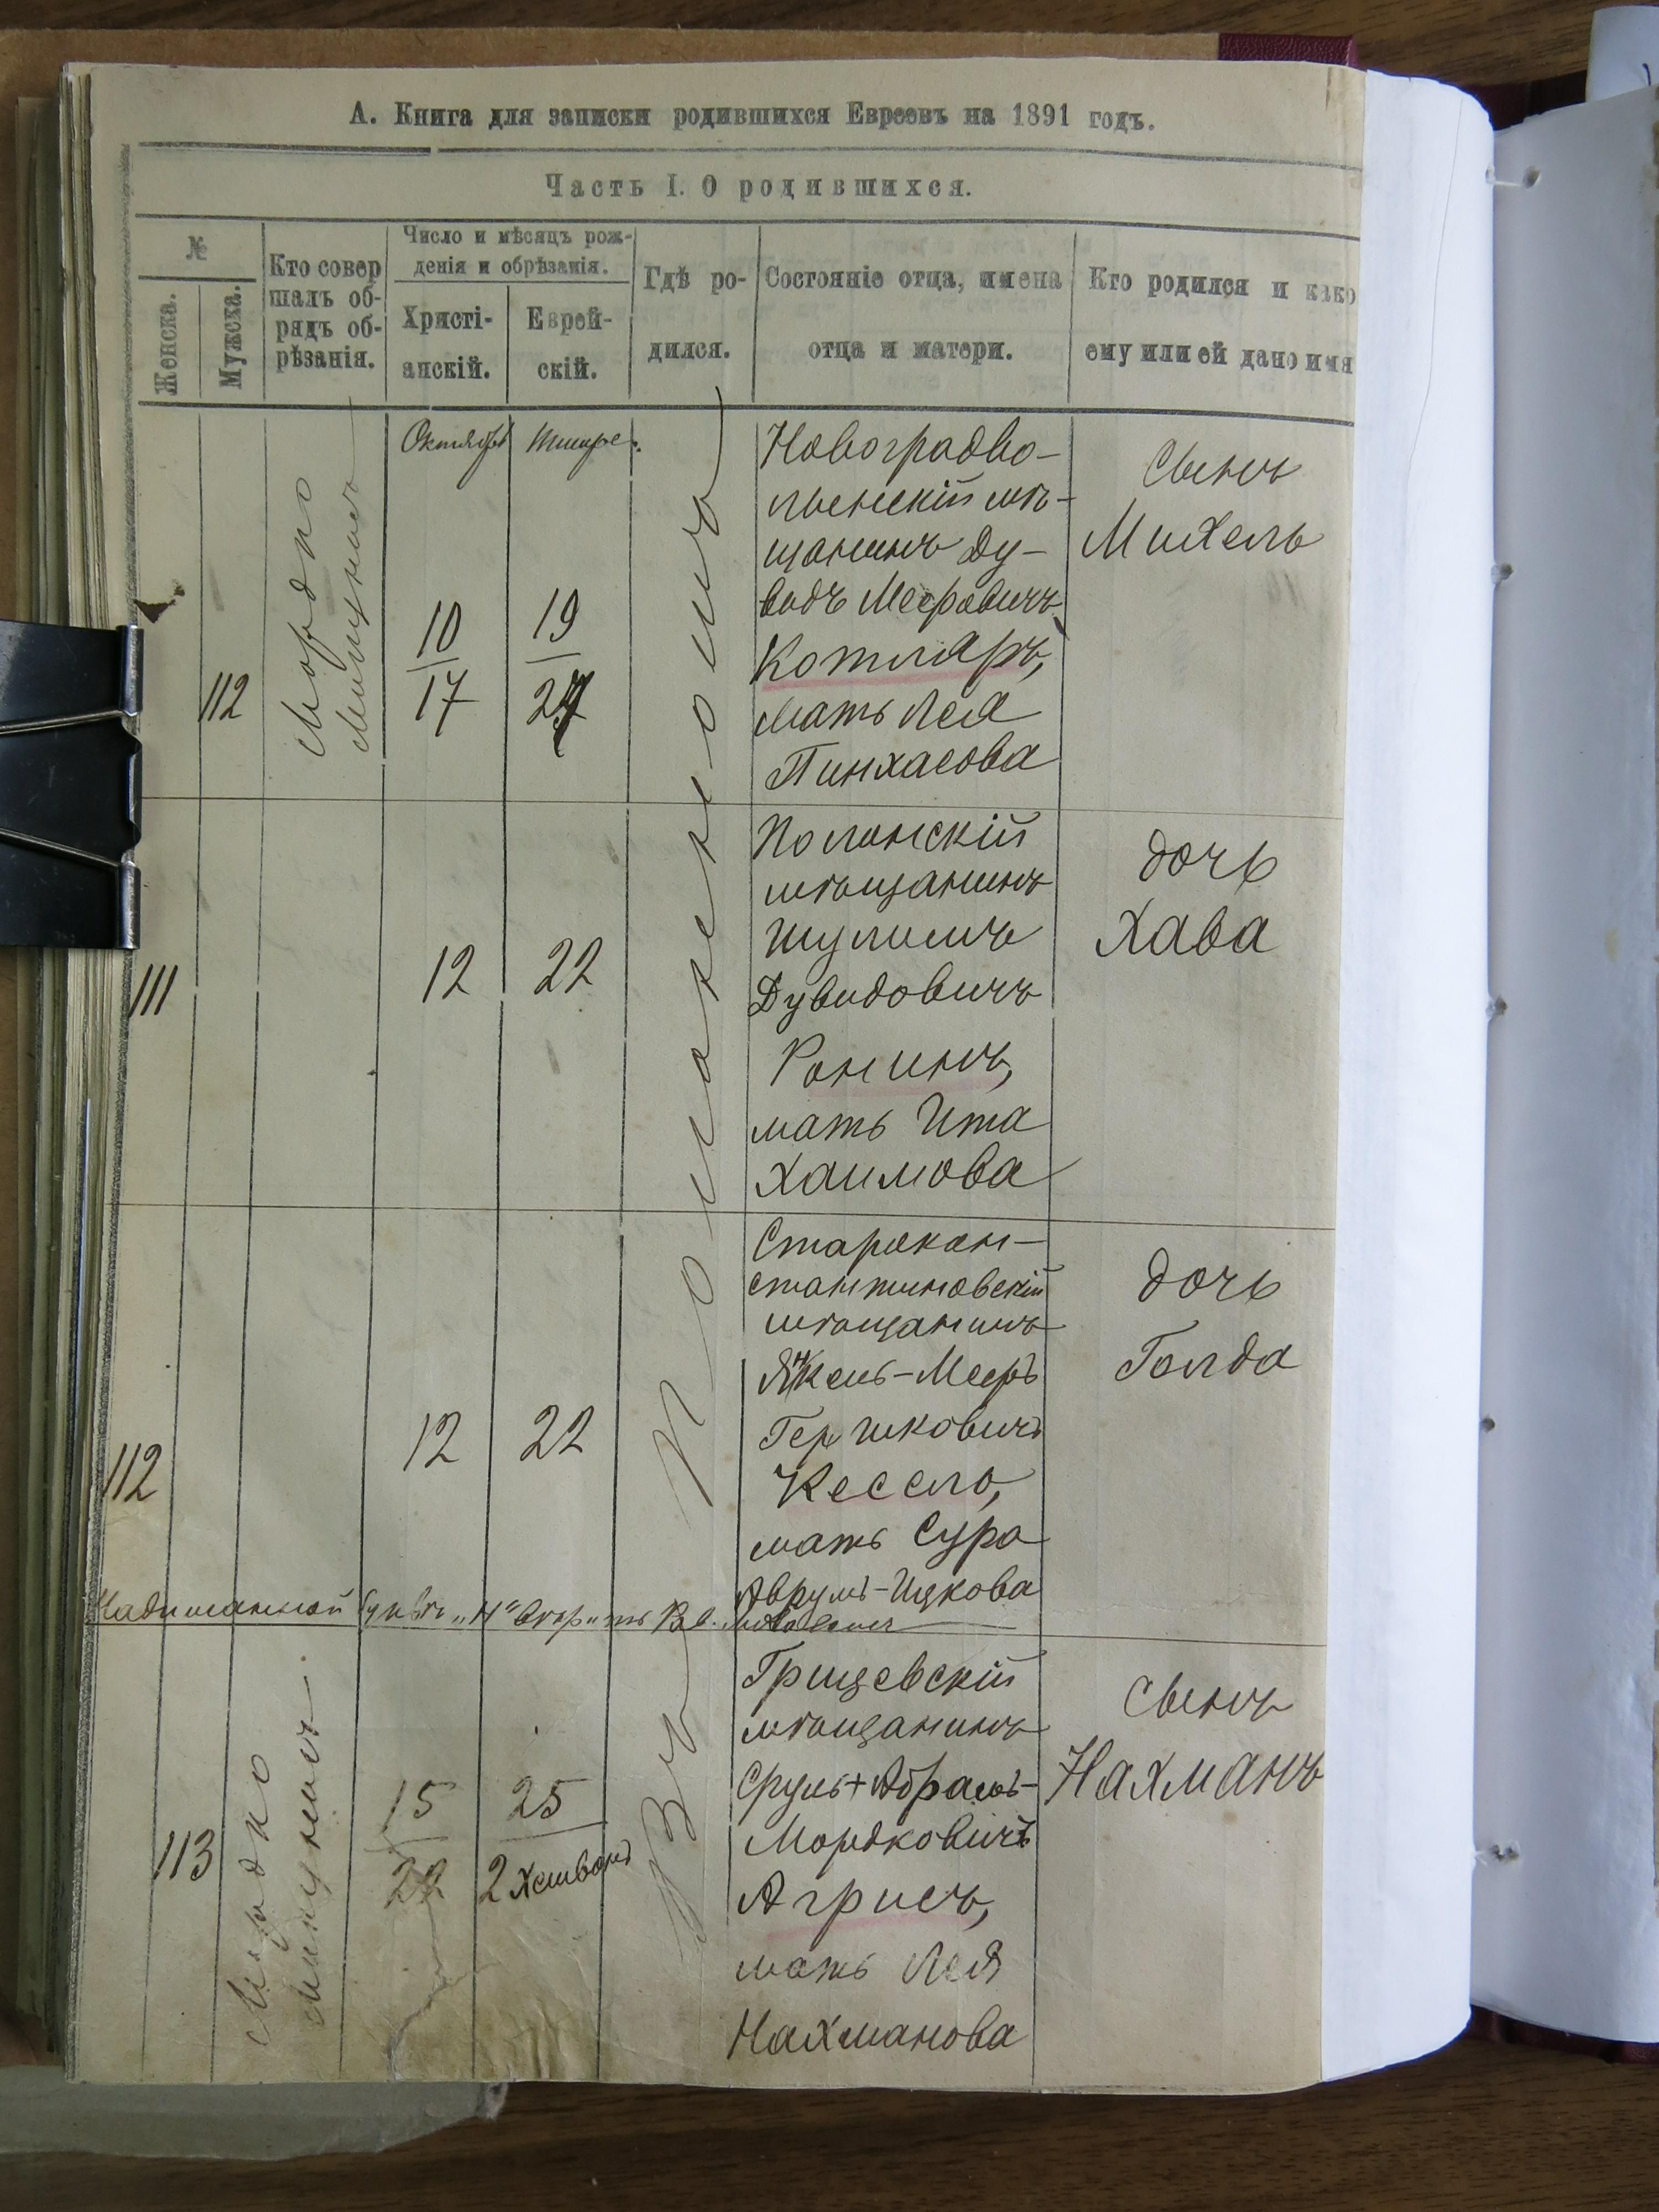 А. Книга для записки родившихся Евреевъ на 1891 годъ.
Часть I. О родившихся.
№
Женска.
Мужска.
Кто совер
шалъ об-
рядъ об-
рѣзанія.
Число и мѣсяцъ рож-
денія и обрѣзанія.
Христі-
анскій.
Еврей-
скій.
Гдѣ ро-
дился.
Состояніе отца, имена
отца и матери.
Кто родился и како
ему или ей дано имя
112
Мордко
Октября
10
17
Тишре
19
Новоградво-
лынскій мѣ-
щанинъ Ду-
видъ Мееровичъ
Котляръ,
мать Лея
Пинхасова
Сынъ
Михель
111
12
22
Полонскій
мѣщанинъ
Шулимъ
Дувидовичъ
мать Ита
Хаимова
дочь
Хава
112
12
22
Старокон-
стантиновскій
мѣщанинъ
Янкель-Мееръ
Гершковичъ
мать Сура
Аврумъ-Ицкова
дочь
Голда
буквѣ „Н“
113
Мордко
15
22
25
2 Хешвонъ
Въ
Грицевскій
мѣщанинъ
Сруль+Абрамъ-
Мордковичъ
Агрисъ,
мать Лея
Нахманова
Сынъ
Нахманъ